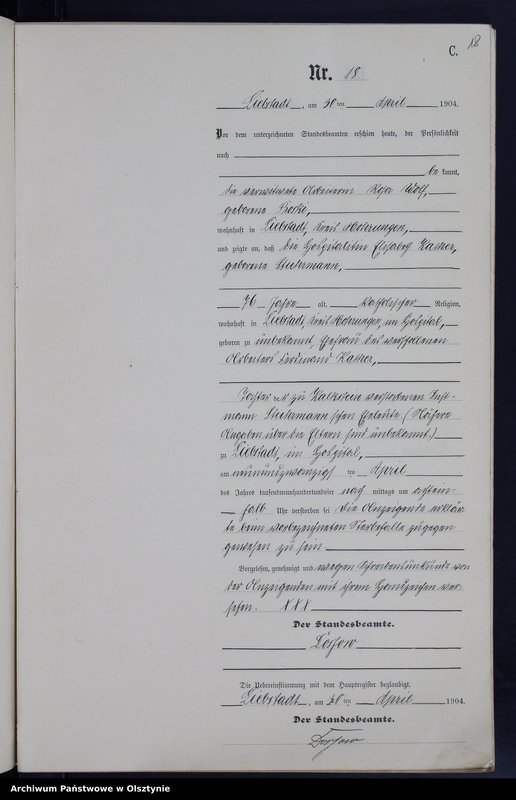 C. 18
Nr. 18
Liebstadt, am 30 ten April 1904.
Vor dem unterzeichneten Standesbeamten erschien heute, der Persönlichkeit
nach
be kannt,
die verwitwete Arbeiterin Wolf,
geborene
wohnhaft in Liebstadt, Kreis Mohrungen,
und zeigte an, daß die Hospitalitin Elisabeth
geborene Stutermann,
76 Jahre alt, katholischer Religion,
wohnhaft in Liebstadt, Kreis Mohrungen, im Hospital,
geboren zu unbekannt, Ehefrau des verschollenen
Arbeiters Ferdinand
Tochter der zu verstorbenen Inst-
mann Stutermann schen Eheleute (Nähere
Angaben über die Eltern sind unbekannt.)
zu Liebstadt, im Hospital,
am neunundzwanzigsten April
des Jahres tausendneunhundertundvier nach mittags um
halb Uhr verstorben sei die Anzeigende erklär-
te beim vorbezeichneten Sterbefalle zugegen
gewesen zu sein.
Vorgelesen, genehmigt und wegen Schreibensunkunde von
der Anzeigenden mit ihrem Handzeichen ver-
sehen. XXX
Der Standesbeamte.
Die Uebereinstimmung mit dem Hauptregister beglaubigt.
Liebstadt, am 30 ten April 1904.
Der Standesbeamte.
Archiwum Państwowe w Olsztynie